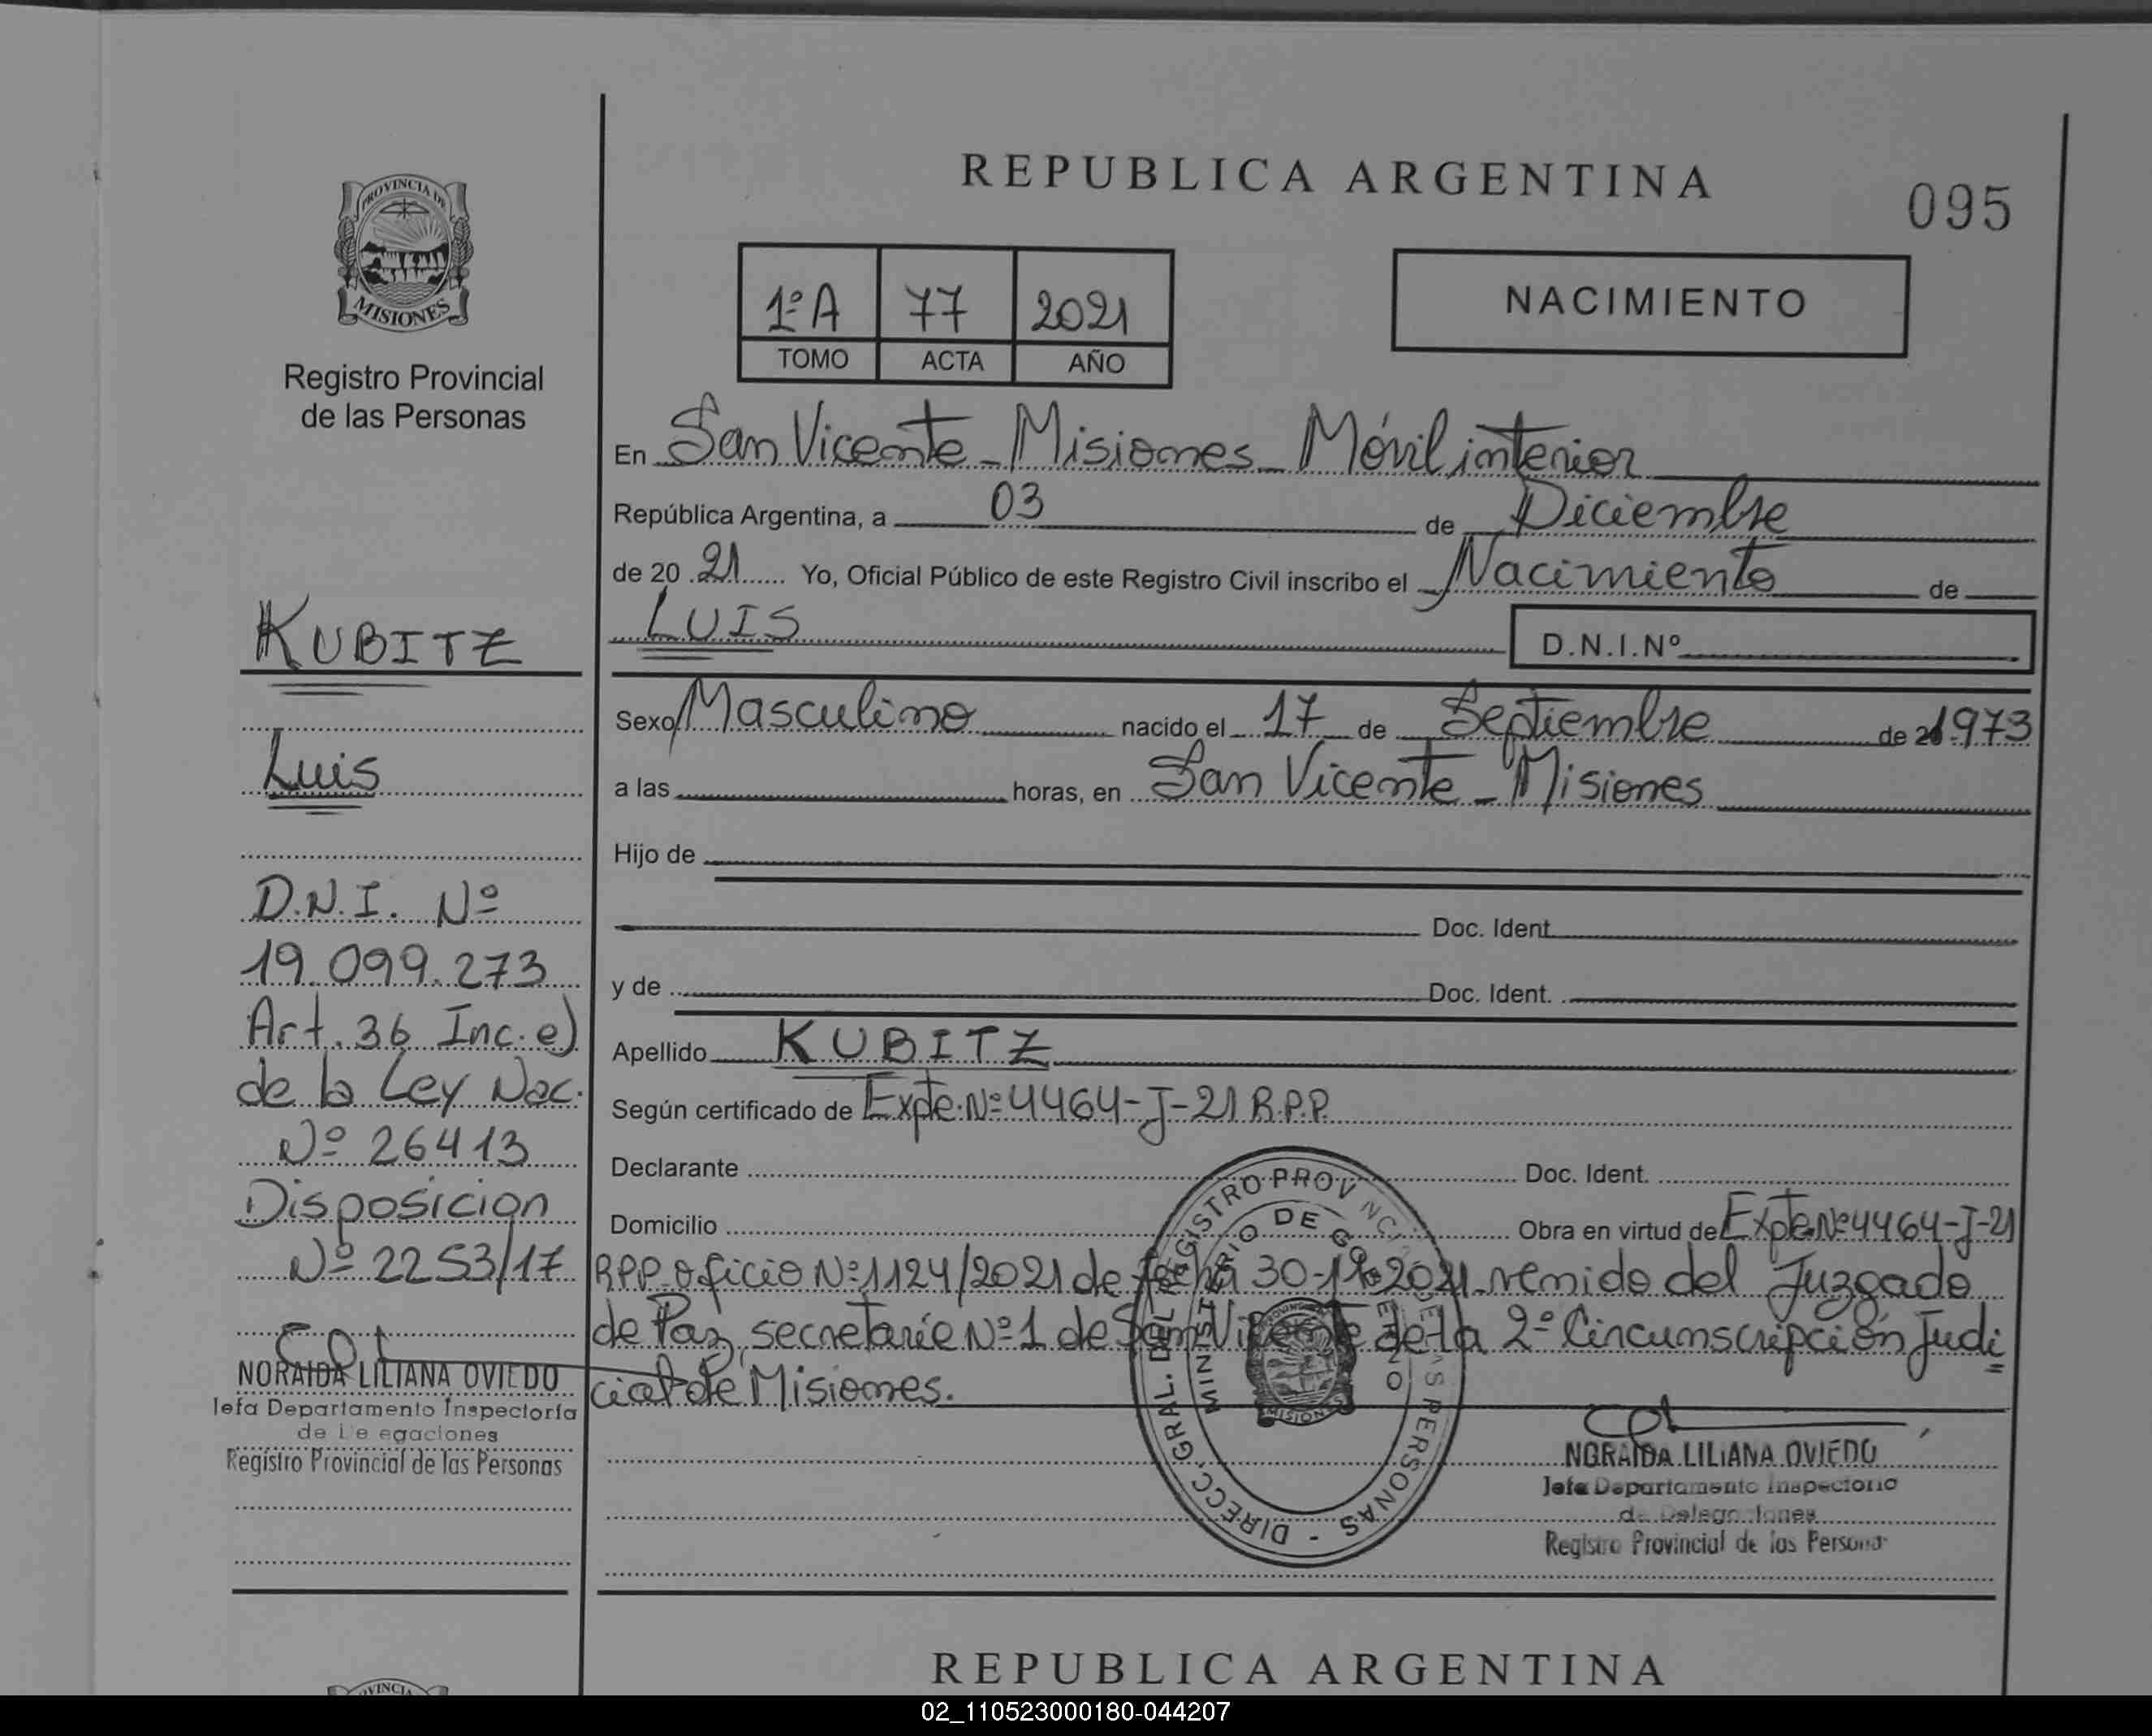 REPUBLICA ARGENTINA
095
PROVINCIA DE
MISIONES
Registro Provincial
de las Personas
1º A 77 2021
TOMO ACTA AÑO
NACIMIENTO
En San Vicente - Misiones - Móvil interior
República Argentina, a 03 de Diciembre
de 20 21 Yo, Oficial Público de este Registro Civil inscribo el Nacimiento de
LUIS D.N.I.Nº
Sexo Masculino nacido el 17 de Septiembre de 1973
a las horas, en San Vicente - Misiones
Hijo de
Doc. Ident.
y de Doc. Ident.
Apellido KUBITZ
Según certificado de Expte. Nº 4464-J-21 R.P.P.
Declarante Doc. Ident.
Domicilio Obra en virtud de Expte Nº 4464-J-21
R.P.P. oficio Nº 1124/2021 de fecha 30-11-2021 remido del Juzgado
de Paz, secretaríe Nº 1 de San Vicente de la 2º Circunscripción Judi
cial de Misiones.
KUBITZ
Luis
D.N.I. Nº
19.099.273
Art. 36 Inc. e)
de la Ley Nac.
Nº 26413
Disposicion
Nº 2253/17
NORAIDA LILIANA OVIEDO
Jefa Departamento Inspectoría
de De egaciones
Registro Provincial de las Personas
DIRECC. GRAL. DEL REGISTRO PROVINCIAL DE LAS PERSONAS -
MINISTERIO DE GOBIERNO
MISIONES
NORAIDA LILIANA OVIEDO
Jefa Departamento Inspectoria
de Delegaciones
Registro Provincial de las Personas
REPUBLICA ARGENTINA
02_110523000180-044207